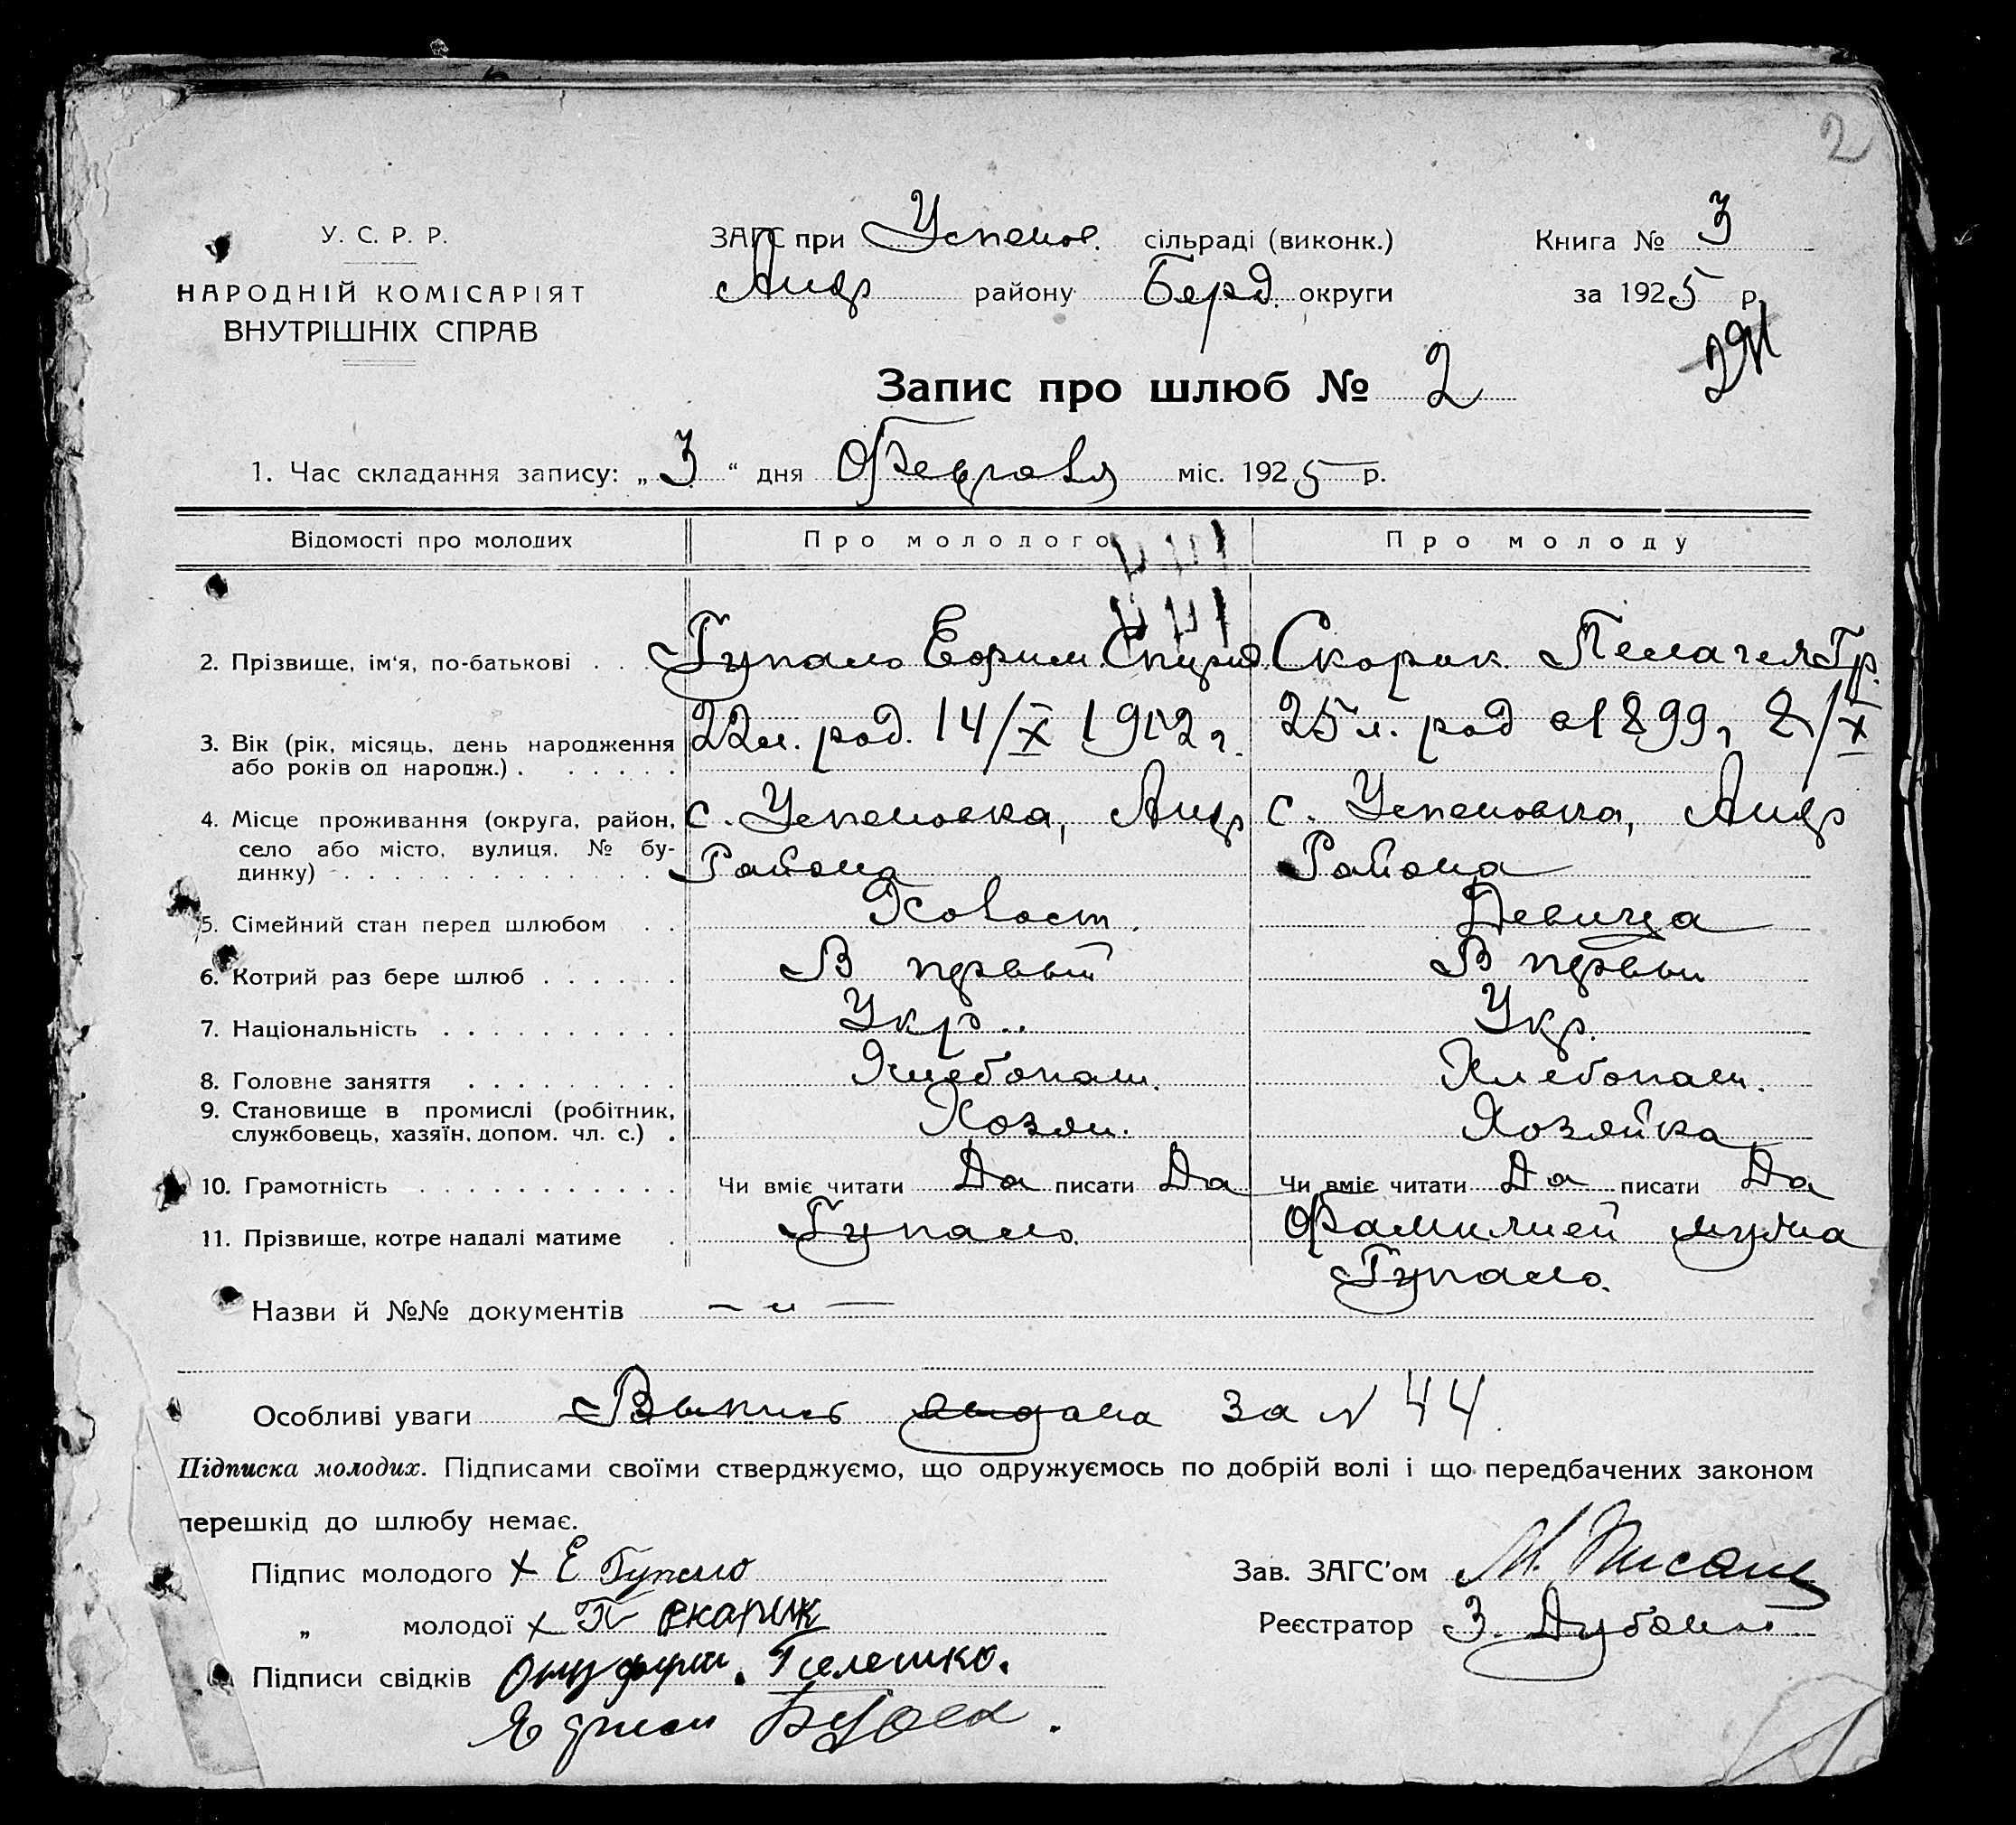 2
У. С. Р. Р.
НАРОДНІЙ КОМІСАРІЯТ
ВНУТРІШНІХ СПРАВ
ЗАГС при Успенов. сільраді (виконк.)
Андр району Берд. округи
Книга № 3
за 1925 р.
Запис про шлюб № 2
1. Час складання запису: „3“ дня Февраля міс. 1925 р.
Відомості про молодих Про молодого Про молоду
2. Прізвище, ім'я, по-батькові . . Гупало Ефрим Спирид Скорик Пелагея Гр.
3. Вік (рік, місяць, день народження 22 л. род. 14/X 1902 г. 25 л. род 1899 г 8/X
або років од народж.) . . . . . .
4. Місце проживання (округа, район, с. Успеновка, Андр с. Успеновка, Андр
село або місто, вулиця, № бу-
динку) . . . . . . . . . . . . . Района Района
5. Сімейний стан перед шлюбом . . Холост. Девица
6. Котрий раз бере шлюб . . . . . . В первый В первый
7. Національність . . . . . . . . . . Укр.. Укр.
8. Головне заняття . . . . . . . . . Хлебопаш. Хлебопаш.
9. Становище в промислі (робітник,
службовець, хазяїн, допом. чл. с.) . Хозяин. Хозяйка
10. Грамотність . . . . . . . . . . . Чи вміє читати Да писати Да Чи вміє читати Да писати Да
11. Прізвище, котре надалі матиме . Гупало. Фамилией мужа
Гупало.
Назви й №№ документів — „ —
Особливі уваги Выпись выдана за № 44
Підписка молодих. Підписами своїми стверджуємо, що одружуємось по добрій волі і що передбачених законом
перешкід до шлюбу немає.
Підпис молодого + Е Гупало
„ молодої + П Скарик
Підписи свідків
Зав. ЗАГС'ом М.
Реєстратор З.